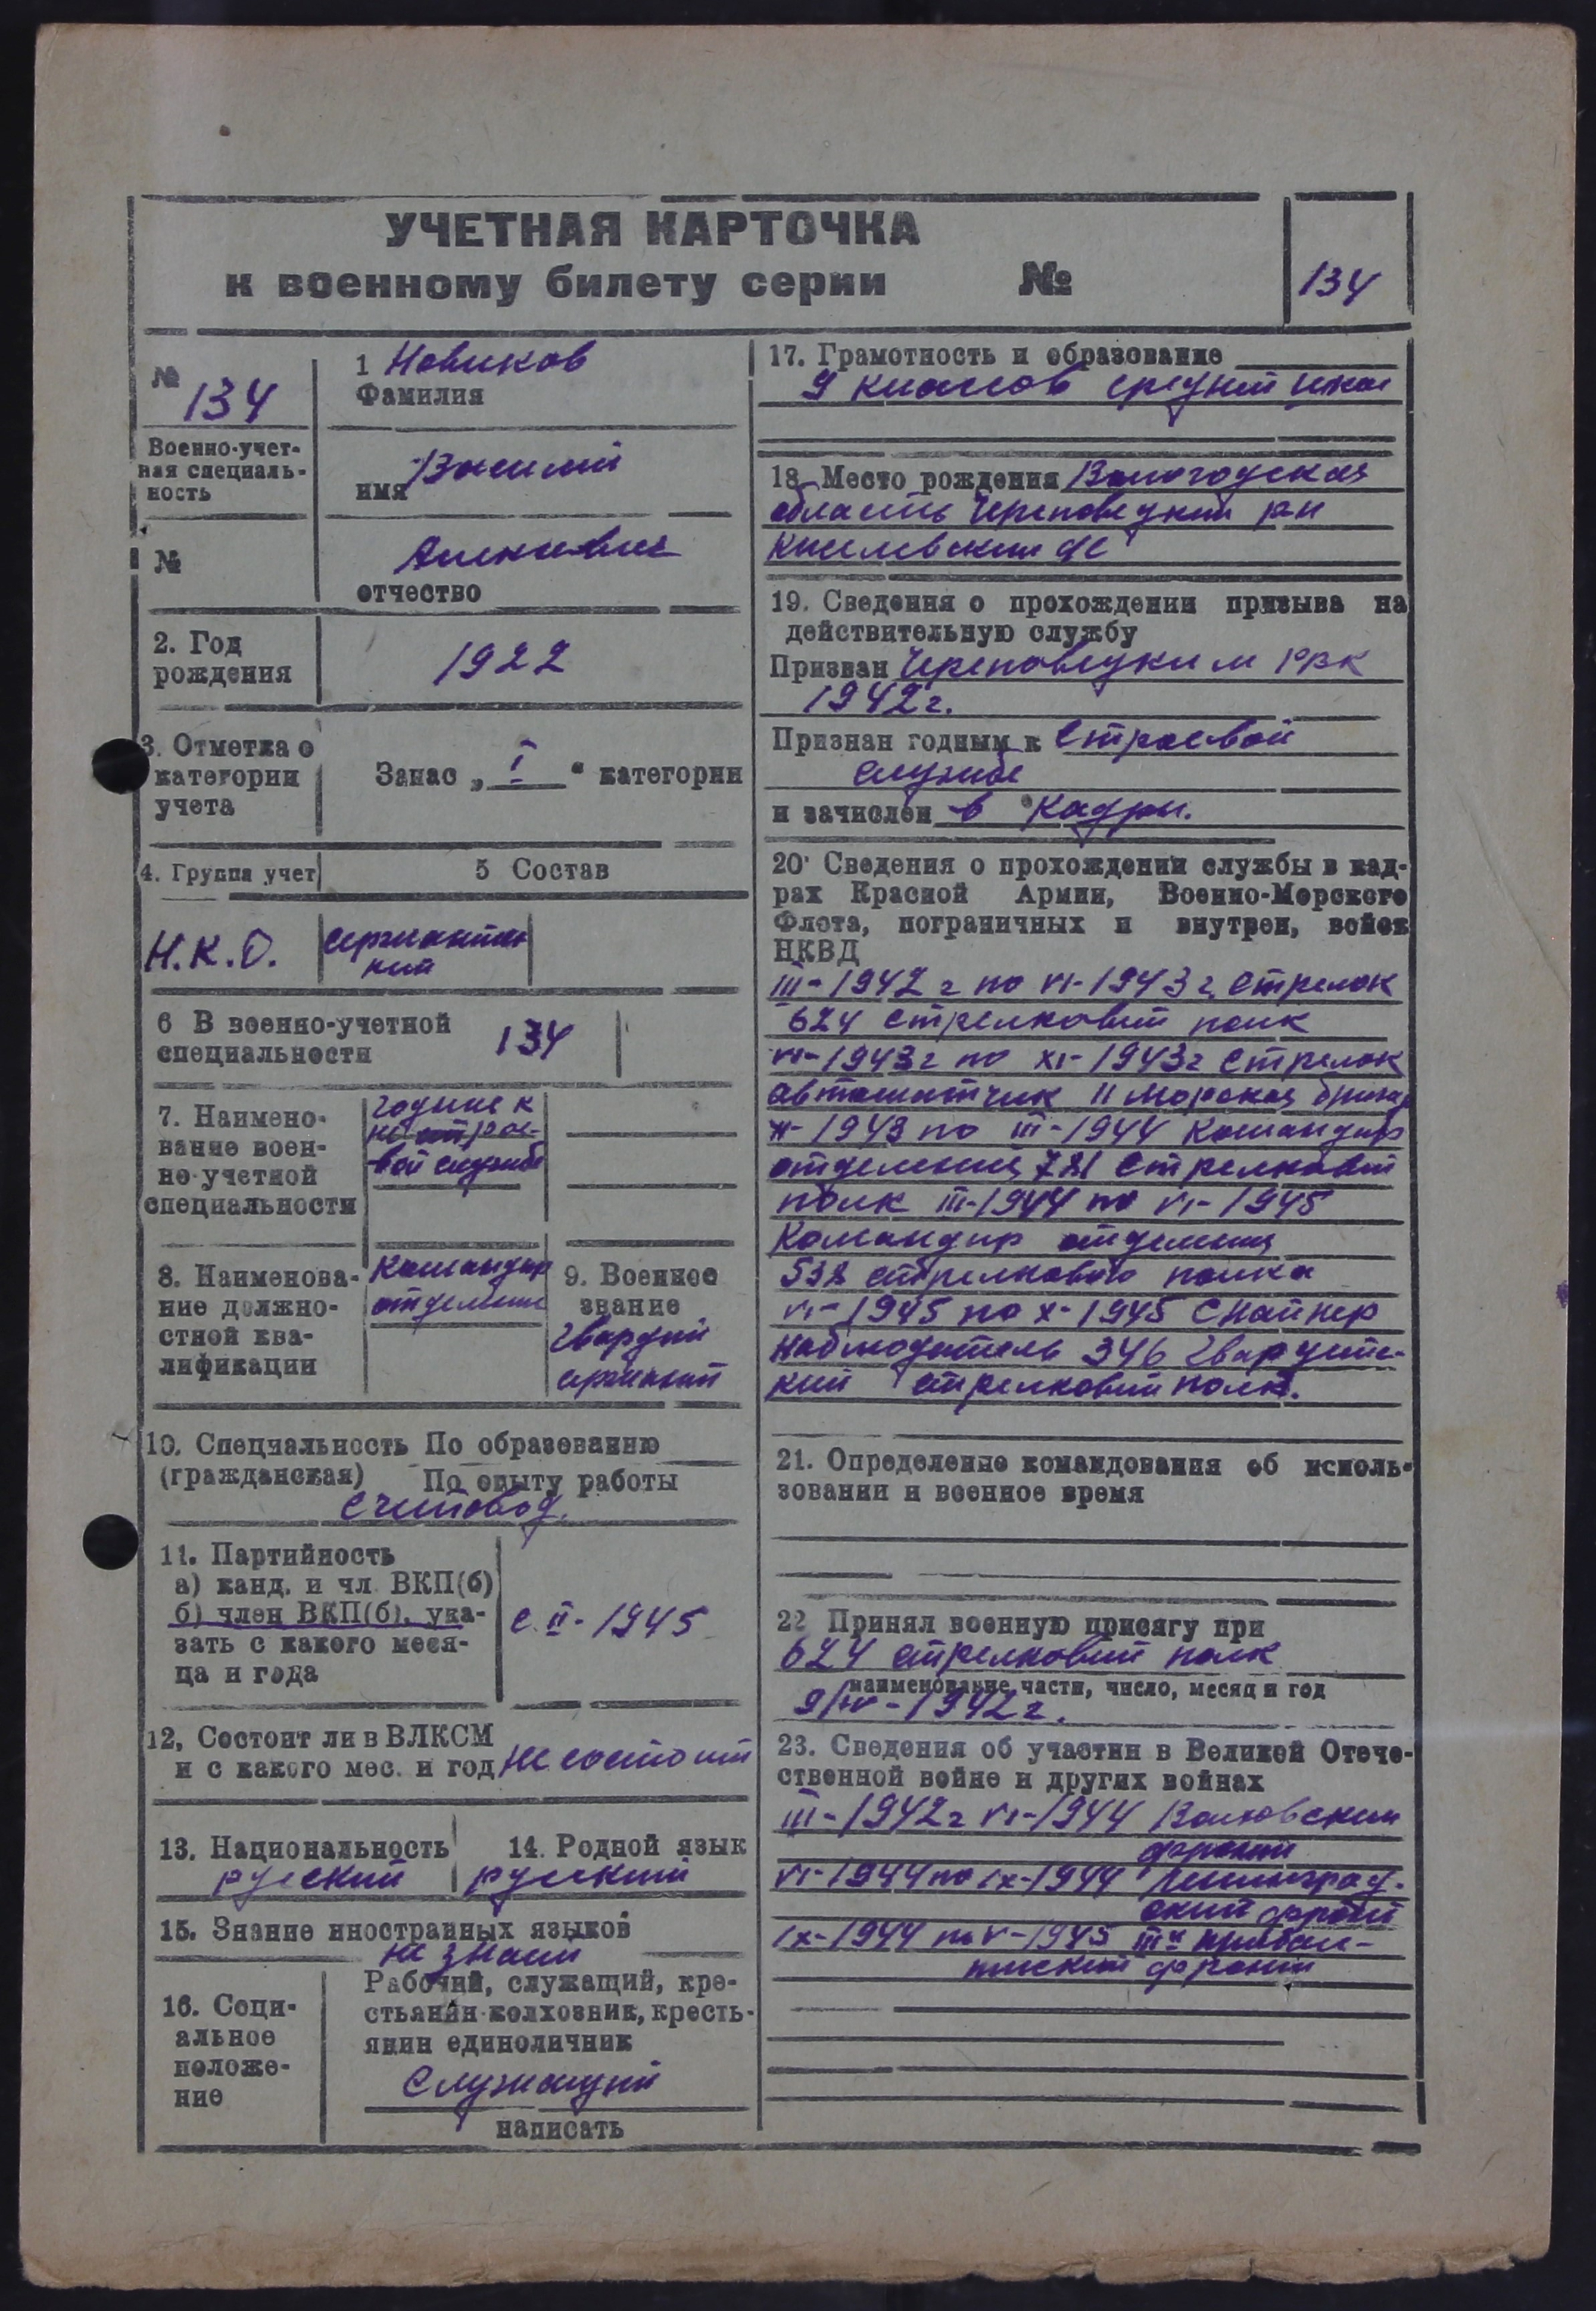 УЧЕТНАЯ КАРТОЧКА
к военному билету серии №
134
№
134
Военно-учет-
ная специаль-
ность
№
1 Новиков
Фамилия
Василий
имя
отчество
2. Год
рождения
1922
3. Отметка о
категории
учета
Запас „ I “ категории
4. Группа учет
5 Состав
Н.К.О.
сержантск
кий
6 В военно-учетной
специальности
134
7. Наимено-
вание воен-
но-учетной
специальности
годные к
не строе-
вой службе
8. Наименова-
ние должно-
стной ква-
лификации
Командир
отделения
9. Военное
звание
Гвардии
сержант
10. Специальность По образованию
(гражданская) По опыту работы
Счетовод.
11. Партийность
а) канд. и чл. ВКП(б)
б) член ВКП(б), ука-
зать с какого меся-
ца и года
с II-1945
12, Состоит ли в ВЛКСМ
и с какого мес. и год не состоит
13. Национальность
русский
14. Родной язык
русский
15. Знание иностранных языков
не знает
16. Соци-
альное
положе-
ние
Рабочий, служащий, кре-
стьянин-колхозник, кресть-
янин единоличник
Служащий
написать
17. Грамотность и образование
9 классов средней школ
18. Место рождения Вологодская
область Череповецкий р-н
19. Сведения о прохождении призыва на
действительную службу
Призван Череповецким РВК
1942г.
Признан годным к Строевой
службе
и зачислен в кадры.
20. Сведения о прохождении службы в кад-
рах Красной Армии, Военно-Морского
Флота, пограничных и внутрен, войск
НКВД
III-1942 г по VI-1943 г. Стрелок
624 стрелковый полк
VI-1943г по XI-1943г Стрелок
автоматчик 11 морская бригад
XI-1943 по III-1944 командир
отделения 781 стрелковый
полк III-1944 по VI-1945
Командир отделения
538 стрелкового полка
VI-1945 по X-1945 снайпер
наблюдатель 346 Гвардейс-
кий стрелковый полк.
21. Определение командования об исполь-
зовании и военное время
22 Принял военную присягу при
624 стрелковый полк
наименование части, число, месяц и год
9/IV-1942г.
23. Сведения об участии в Великой Отече-
ственной войне и других войнах
III-1942г VI-1944 Волховский
фронт
VI-1944 по IX-1944 Ленинград-
ский фронт
IX-1944 по V-1945 III й прибал-
тийский фронт